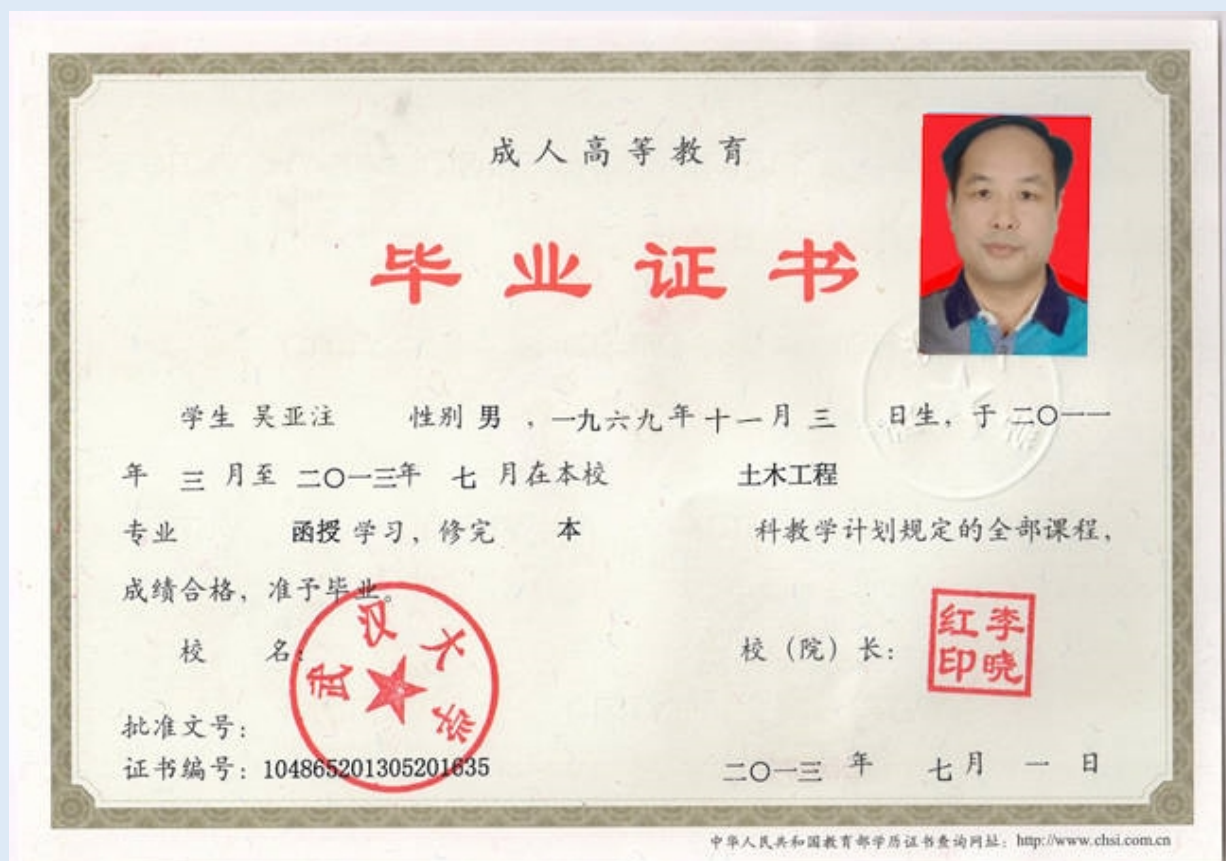 成人高等教育
毕业证书
学生 吴亚注 性别 男 ，一九六九年 十一月 三 日生，于 二〇一一
年 三 月至 二〇一三年 七 月在本校 土木工程
专业 函授 学习，修完 本 科教学计划规定的全部课程，
成绩合格，准予毕业。
校 名：
武汉大学
校（院）长：
李晓红印
批准文号：
证书编号：104865201305201635
二〇一三 年 七 月 一 日
中华人民共和国教育部学历证书查询网址：http://www.chsi.com.cn